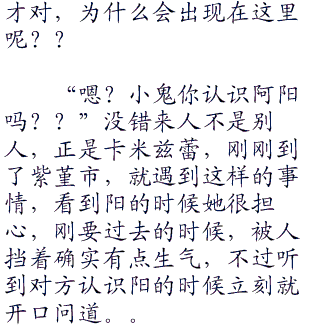 才对，为什么会出现在这里
呢？？
“嗯？小鬼你认识阿阳
吗？？”没错来人不是别
人，正是卡米兹蕾，刚刚到
了紫堇市，就遇到这样的事
情，看到阳的时候她很担
心，刚要过去的时候，被人
挡着确实有点生气，不过听
到对方认识阳的时候立刻就
开口问道。。